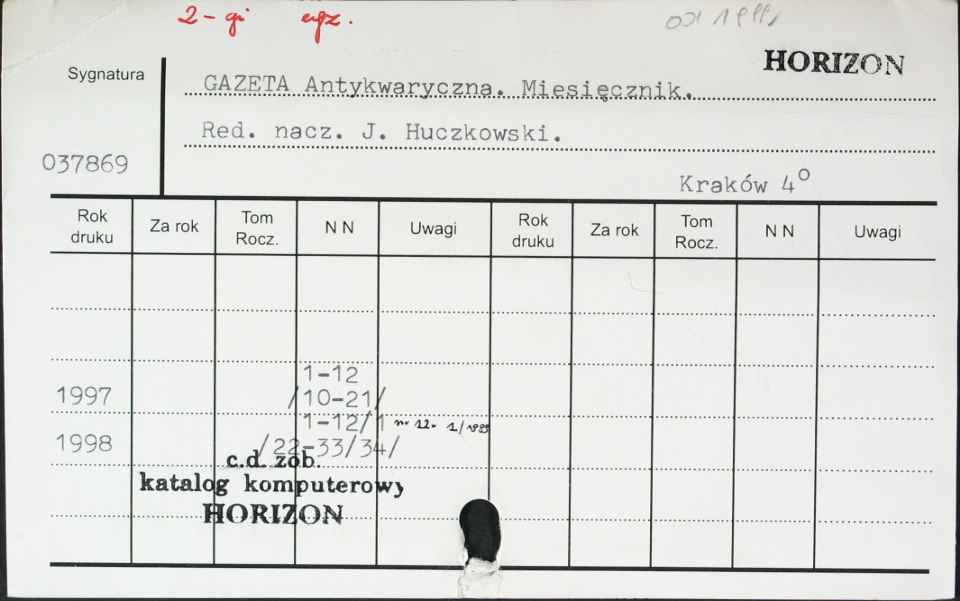 2-gi egz.
HORIZON
Sygnatura
GAZETA Antykwaryczna. Miesięcznik.
Red. nacz. J. Huczkowski.
037869
Kraków 4º
Rok druku Za rok Tom Rocz. N N Uwagi Rok druku Za rok Tom Rocz. N N Uwagi
1-12
1997 /10-21/
1-12/1 nr 12- 1/1999
1998 /22-33/34/
c.d. zob.
katalog komputerowy
HORIZON